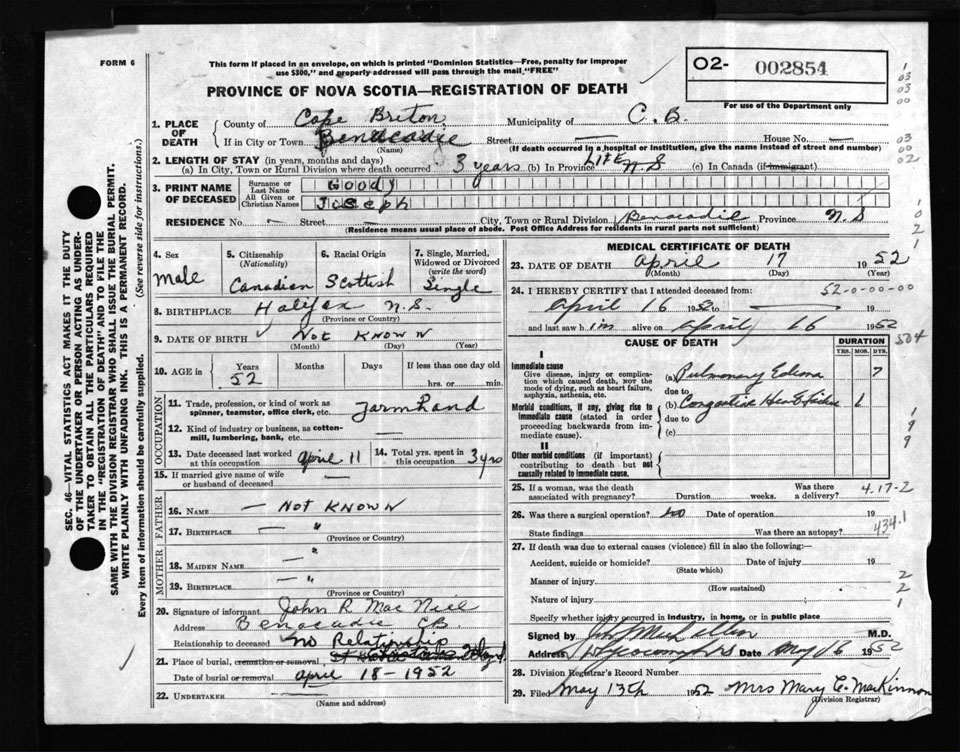 FORM 6
This form if placed in an envelope, on which is printed "Dominion Statistics—Free, penalty for improper
use $300," and properly addressed will pass through the mail "FREE"
O2- 002854
For use of the Department only
PROVINCE OF NOVA SCOTIA—REGISTRATION OF DEATH
1. PLACE OF DEATH County of Cape Breton Municipality of C. B.
If in City or Town Benacadie Street — House No. —
(Name) (If death occurred in a hospital or institution, give the name instead of street and number)
2. LENGTH OF STAY (in years, months and days)
(a) In City, Town or Rural Division where death occurred 3 years (b) In Province LIFE N.S (c) In Canada (if immigrant)
3. PRINT NAME OF DECEASED Surname or Last Name Goody
All Given or Christian Names Joseph
RESIDENCE No. — Street — City, Town or Rural Division Benacadie Province N.S
(Residence means usual place of abode. Post Office Address for residents in rural parts not sufficient)
4. Sex Male
5. Citizenship (Nationality) Canadian
6. Racial Origin Scottish
7. Single, Married, Widowed or Divorced (write the word) Single
8. BIRTHPLACE Halifax N.S.
(Province or Country)
9. DATE OF BIRTH Not Known
(Month) (Day) (Year)
10. AGE in Years 52 Months Days If less than one day old
hrs. or min.
OCCUPATION
11. Trade, profession, or kind of work as
spinner, teamster, office clerk, etc. farm hand
12. Kind of industry or business, as cotton-
mill, lumbering, bank, etc.
13. Date deceased last worked at this occupation April 11
14. Total yrs. spent in this occupation 3 yrs
15. If married give name of wife
or husband of deceased —
FATHER
16. NAME — Not Known
17. BIRTHPLACE — "
(Province or Country)
MOTHER
18. MAIDEN NAME — "
19. BIRTHPLACE — "
(Province or Country)
20. Signature of informant John R Mac Neil
Address Benacadie CB.
Relationship to deceased no Relationship
21. Place of burial, cremation or removal
Date of burial or removal April 18 - 1952
22. UNDERTAKER —
(Name and address)
MEDICAL CERTIFICATE OF DEATH
23. DATE OF DEATH April 17 1952
(Month) (Day) (Year)
24. I HEREBY CERTIFY that I attended deceased from: 52-0-00-00
April 16 1952 to —
and last saw him alive on April 16 1952
CAUSE OF DEATH
DURATION
YRS. MOS. DYS.
I
Immediate cause
Give disease, injury or complica-
tion which caused death, NOT the
mode of dying, such as heart failure,
asphyxia, asthenia, etc.
(a) Pulmonary Edema 7
due to
Morbid conditions, if any, giving rise to
immediate cause (stated in order
proceeding backwards from im-
mediate cause).
(b) Congestive Heart Failure 1
due to
(c)
II
Other morbid conditions (if important)
contributing to death but not
causally related to immediate cause.
25. If a woman, was the death
associated with pregnancy? Duration weeks. Was there a delivery?
4.17-2
26. Was there a surgical operation? no Date of operation 19
State findings Was there an autopsy?
434.1
27. If death was due to external causes (violence) fill in also the following:—
Accident, suicide or homicide? Date of injury 19
(State which)
Manner of injury
(How sustained)
Nature of injury
Specify whether injury occurred in industry, in home, or in public place
Signed by M.D.
Address Whycocomagh NS Date May 16 1952
28. Division Registrar's Record Number
29. Filed May 13th 1952 Mrs Mary C. MacKinnon
(Division Registrar)
SEC. 46—VITAL STATISTICS ACT MAKES IT THE DUTY
OF THE UNDERTAKER OR PERSON ACTING AS UNDER-
TAKER TO OBTAIN ALL THE PARTICULARS REQUIRED
IN THE "REGISTRATION OF DEATH" AND TO FILE THE
SAME WITH THE DIVISION REGISTRAR WHO SHALL ISSUE THE BURIAL PERMIT.
WRITE PLAINLY WITH UNFADING INK. THIS IS A PERMANENT RECORD.
Every item of information should be carefully supplied. (See reverse side for instructions.)